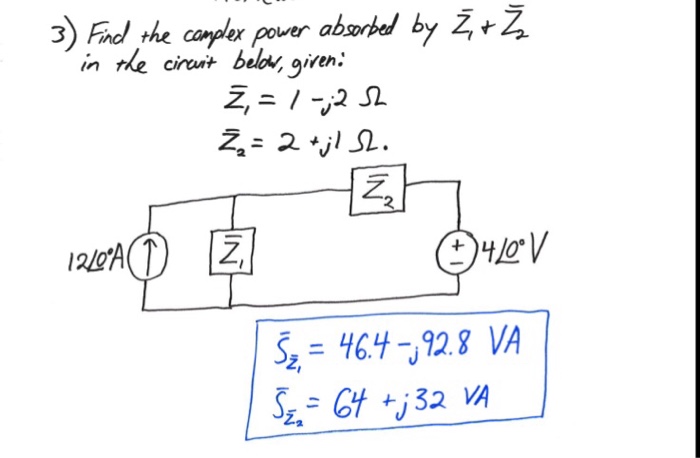 3) Find the complex power absorbed by Z̄₁ + Z̄₂
in the circuit below, given:
Z̄₁ = 1 -j2 Ω
Z̄₂ = 2 +j1 Ω.
Z̄₂
12∠0°A
Z̄₁
+
−
4∠0° V
S̄_Z̄₁ = 46.4 -j92.8 VA
S̄_Z̄₂ = 64 +j32 VA